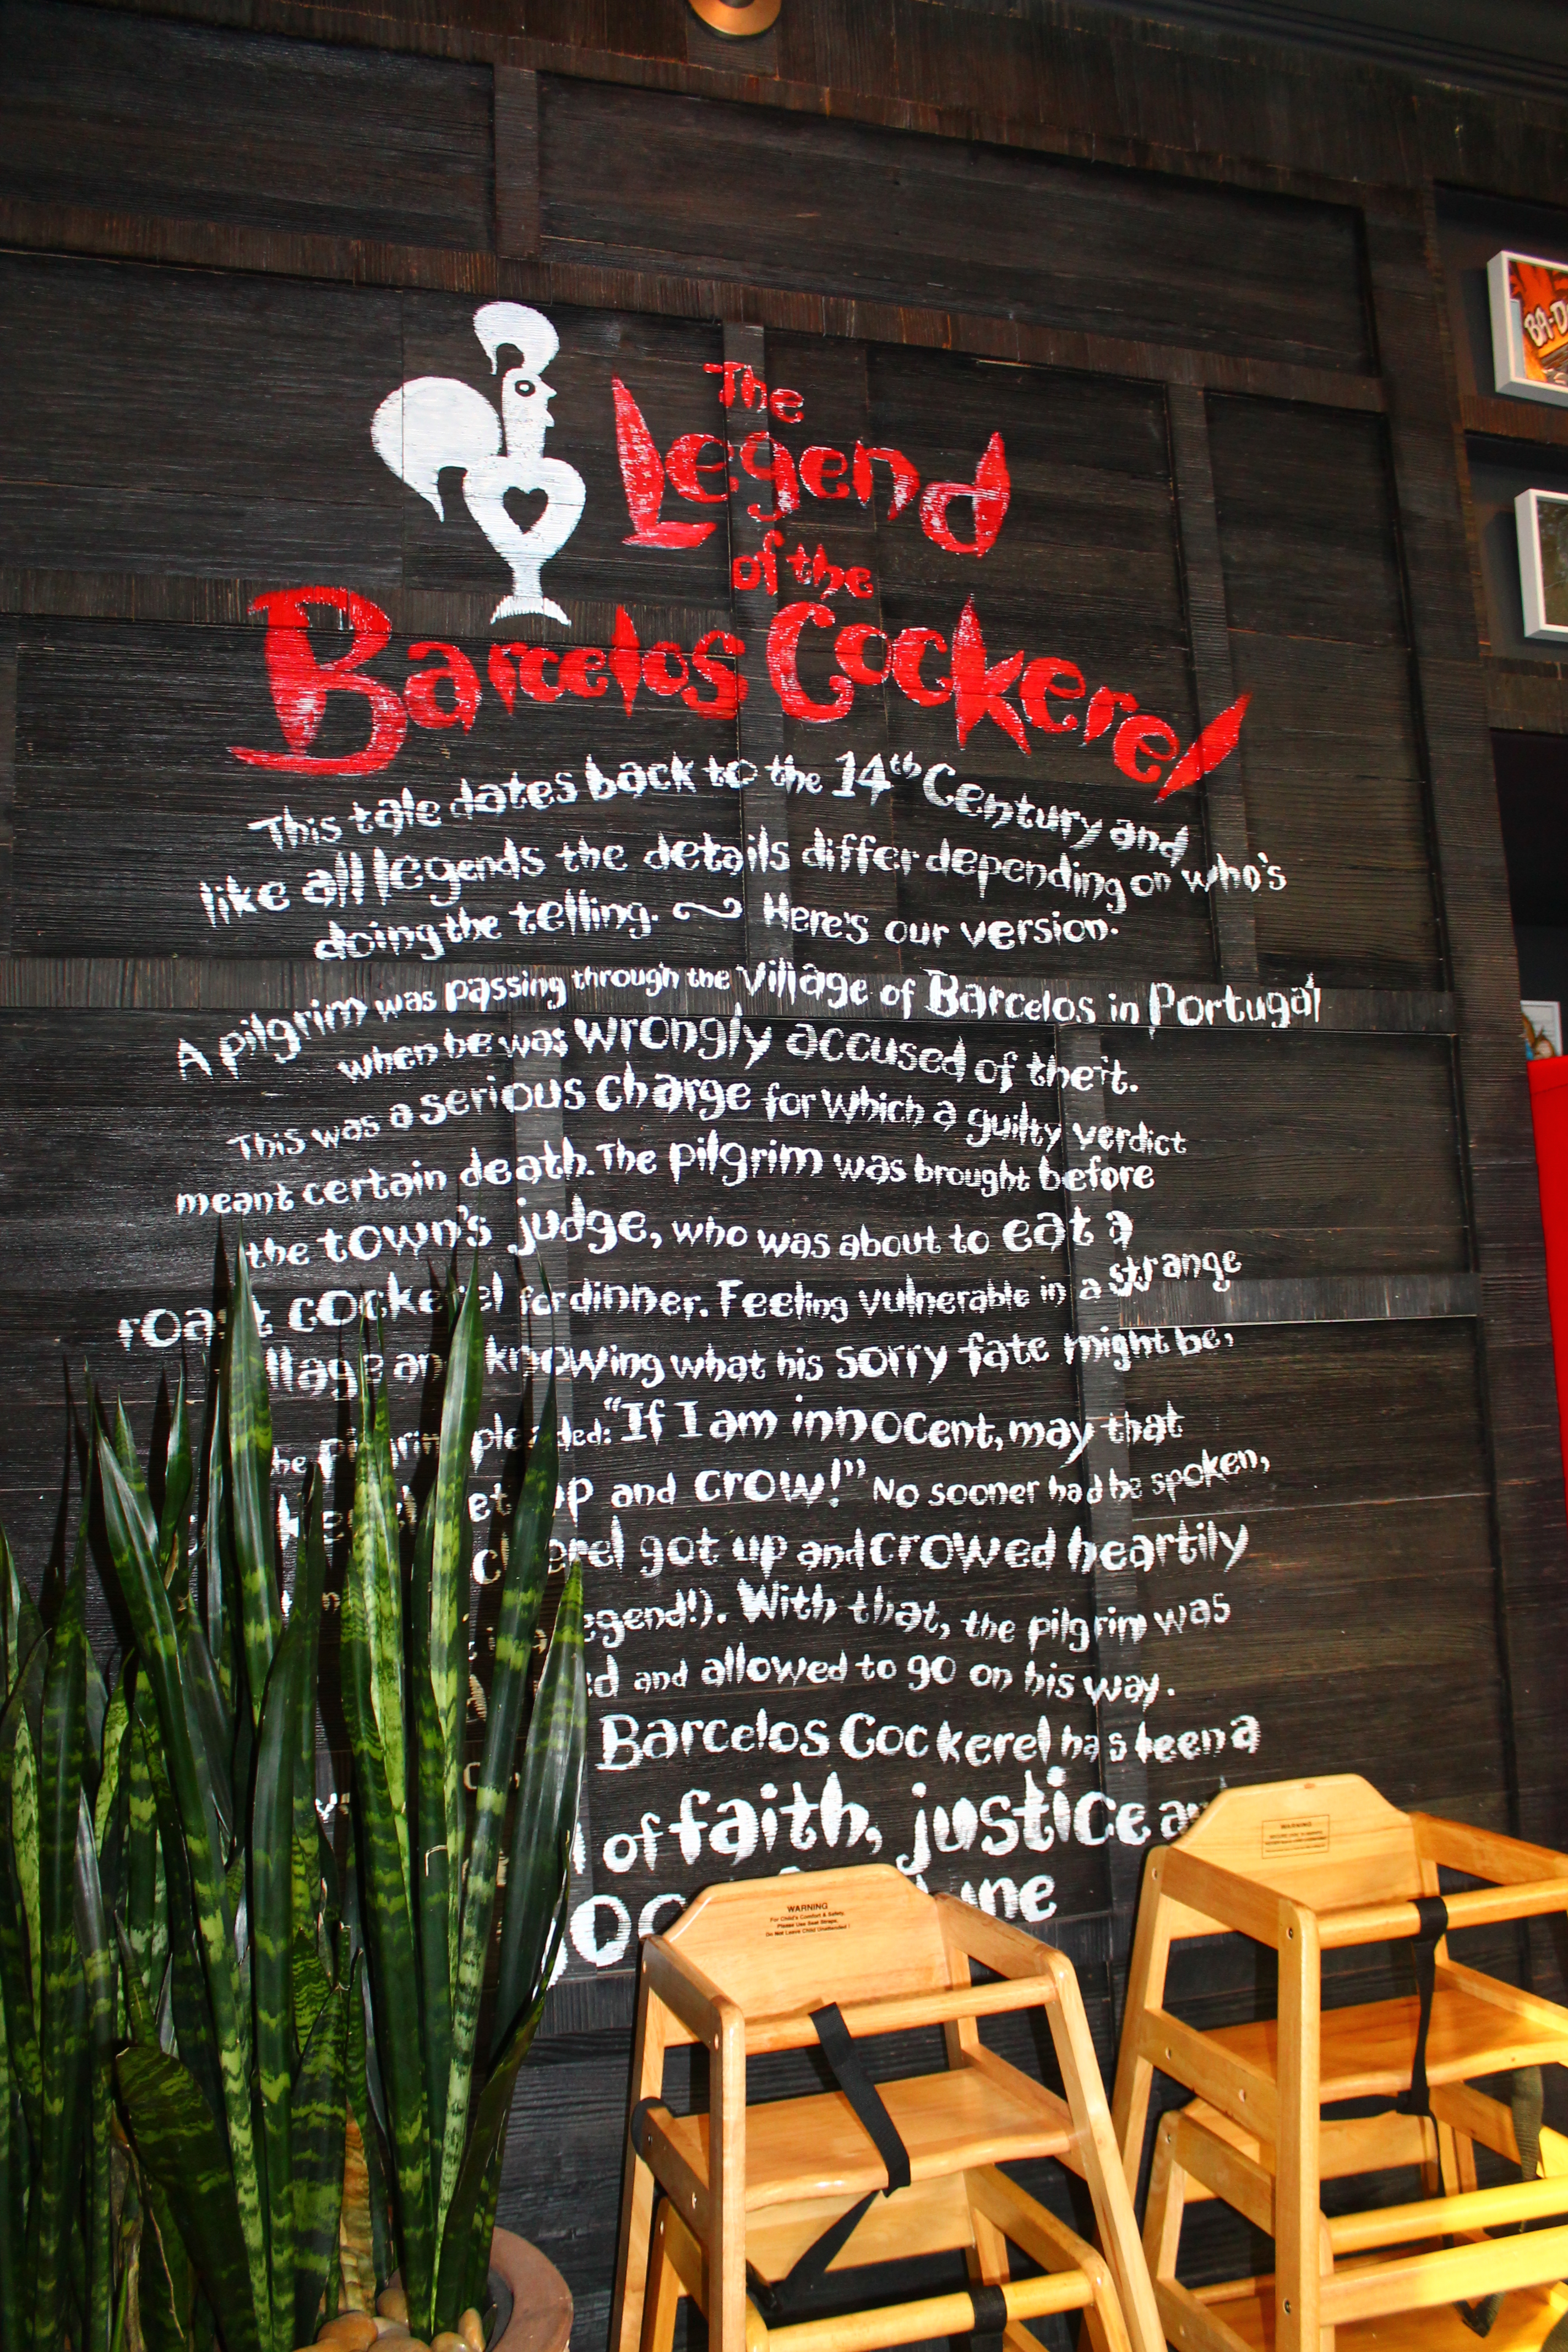 The
Legend
of the
Barcelos Cockerel
This tale dates back to the 14th Century and
like all legends the details differ depending on who's
doing the telling. Here's our version.
A pilgrim was passing through the village of Barcelos in Portugal
when he was wrongly accused of theft.
This was a serious charge for which a guilty verdict
meant certain death. The pilgrim was brought before
the town's judge, who was about to eat a
roast cockerel for dinner. Feeling vulnerable in a strange
village and knowing what his sorry fate might be,
he pilgrim pleaded: "If I am innocent, may that
up and crow!" No sooner had he spoken,
got up and crowed heartily
legend!). With that, the pilgrim was
and allowed to go on his way.
Barcelos Cockerel has been a
of faith, justice
WARNING
For Child's Comfort & Safety,
Please Use Seat Straps,
Do Not Leave Child Unattended!
WARNING
BA-D